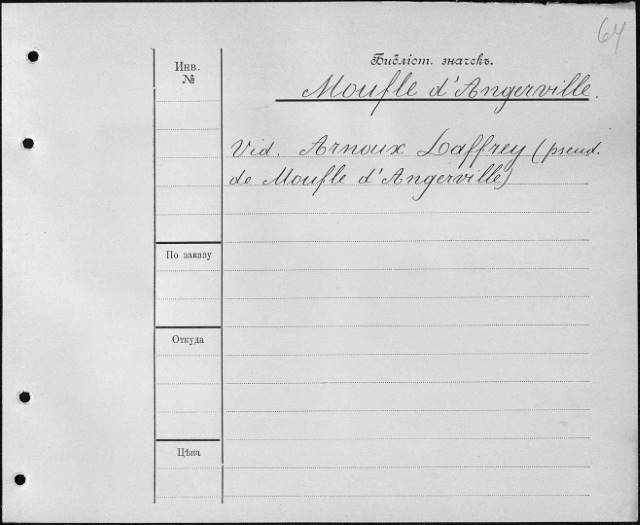 64
Библіот. значекъ.
Инв.
№
Moufle d'Angerville.
Vid. Arnoux Laffrey (pseud.
de Moufle d'Angerville)
По заказу
Откуда
Цѣна